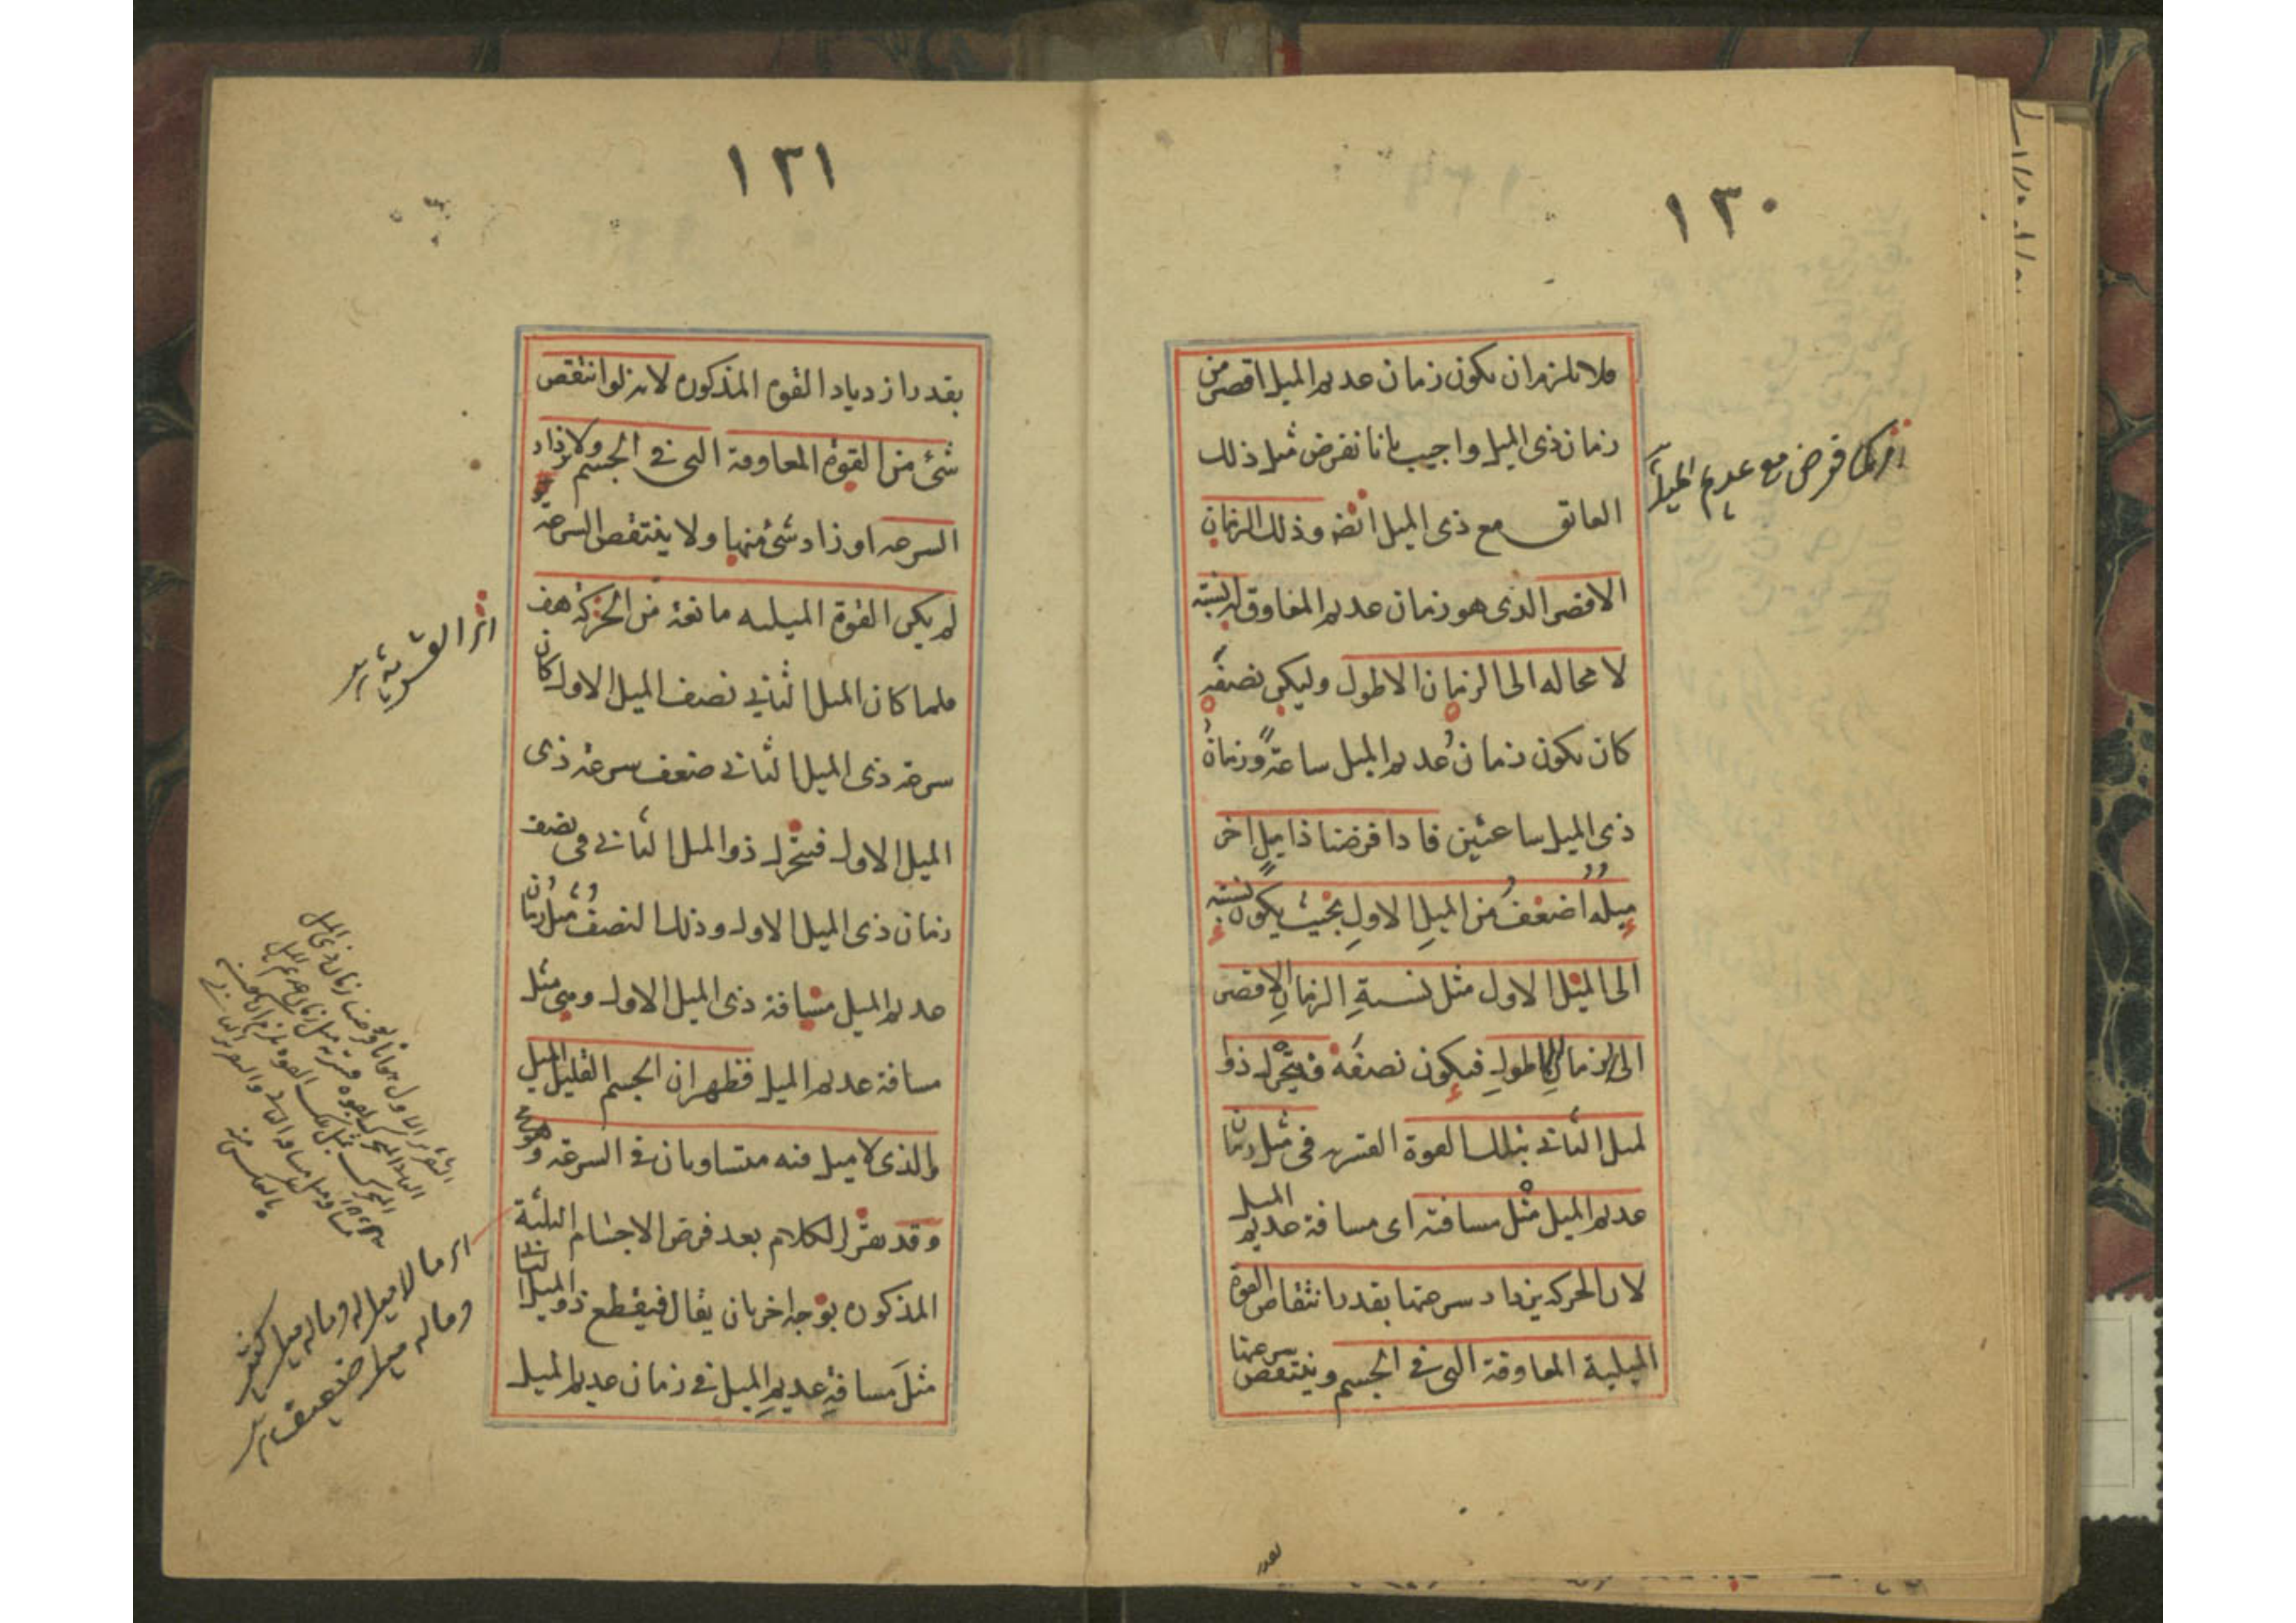 ١٣٠
فلا يلزم ان يكون زمان عديم الميل اقصر من
زمان ذى الميل واجيب بانا نفرض مثل ذلك
العائق مع ذى الميل ايضا وذلك الزمان
الاقصر الذى هو زمان عديم المعاوق له نسبة
لا محاله الى الزمان الاطول وليكن نصفه
كان يكون زمان عديم الميل ساعة وزمان
ذى الميل ساعتين فاذا فرضنا ذا ميل اخر
ميله اضعف من الميل الاول بحيث يكون نسبته
الى الميل الاول مثل نسبة الزمان الاقصر
الى الزمان الاطول فيكون نصفه فيتحرك ذو
لميل الثانى بتلك القوة القسريه فى مثل زمان
عديم الميل مثل مسافته اى مسافة عديم الميل
لان الحركه يزداد سرعتها بقدر انتقاص القوة
الميلية المعاوقة التى فى الجسم وينتقص سرعتها
كما فرض مع عديم الميل
بقدر
١٣١
بقدر ازدياد القوه المذكوره لانه لو انتقص
شئ من القوة المعاوقة التى فى الجسم ولا يزداد
السرعه او زاد شئ منها ولا ينتقص السرعة
لم يكن القوة الميليه مانعة من الحركة هف
فلما كان الميل الثانى نصف الميل الاول كان
سرعة ذى الميل الثانى ضعف سرعة ذى
الميل الاول فيتحرك ذو الميل الثانى فى نصف
زمان ذى الميل الاول وذلك النصف مثل زمان
عديم الميل مسافة ذى الميل الاول وهى مثل
مسافة عديم الميل فظهر ان الجسم القليل الميل
والذى لا ميل فيه متساويان فى السرعة وهو مح
وقد يقرر الكلام بعد فرض الاجسام الثلثة
المذكوره بوجه اخر بان يقال فيقطع ذو الميل الثانى
مثل مسافة عديم الميل فى زمان عديم الميل
اى القسرية
اى ما لا ميل له وما له ميل كثير
وما له ميل ضعيف